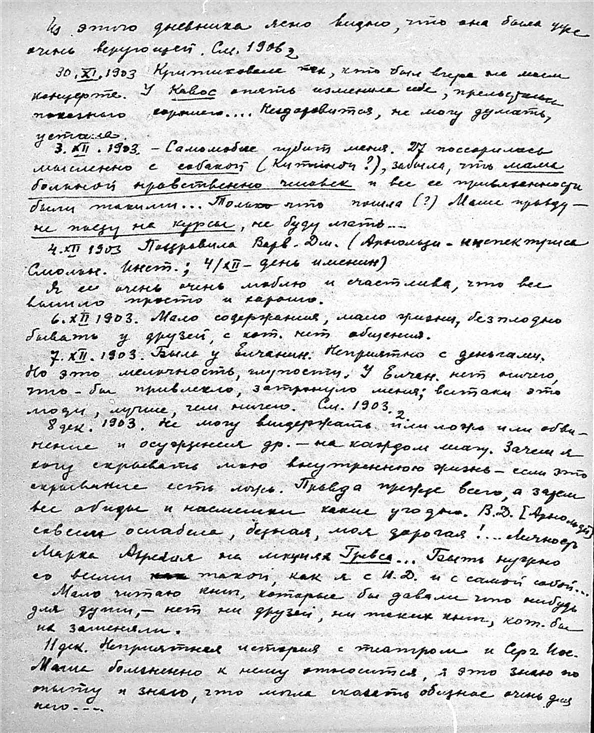 Из этого дневника ясно видно, что она была уже
очень верующей. См. 1906₂
30.XI.1903 Критиковала тех, кто был вчера на моем
концерте. У Кавос опять изменила себе,
показного хорошего.... Нездоровится, не могу думать,
устала.
3.XII.1903. - Самолюбие губит меня. 27 поссорилась
мысленно с собакой (Китти ной?), забыла, что мама
больной нравственно человек и все ее привязанности
были такими... Только что пошла (?) Маше правду -
не поеду на курсы, не буду лгать...
4.XII 1903 Поздравила Варв. Дм. (Арнольди - инспектриса
Смольн. Инст.; 4/XII - день именин)
Я ее очень очень люблю и счастлива, что все
вышло просто и хорошо.
6.XII.1903. Мало содержания, мало жизни, бесплодно
бывать у друзей, с кот. нет общения.
7.XII.1903. Была у Елчанин. Неприятно с деньгами.
Но это мелочность, глупости. У Елчан. нет ничего,
что-бы привлекло, затронуло меня; всетаки это
люди, лучше, чем ничего. См. 1903₂
8 дек. 1903. Не могу выдержать или ложь или обви-
нение и осуждение др. - на каждом шагу. Зачем я
хочу скрывать мою внутреннюю жизнь - если это
скрывание есть ложь. Правда прежде всего, а затем
все обиды и насмешки какие угодно. В.Д. [Арнольди]
совсем ослабела, бедная, моя дорогая!... Личность
Марка Аврелия на лекциях Гревса... Быть нужно
со всеми такой, как я с И.Д. и с самой собой...
Мало читаю книг, которые бы давали что нибудь
для души, - нет ни друзей, ни таких книг, кот. бы
их заменяли.
11 дек. Неприятная история с театром и Серг. Иос.
Маше болезненно к нему относится, я это знаю по
опыту и знаю, что могла сказать обидное очень для
него...